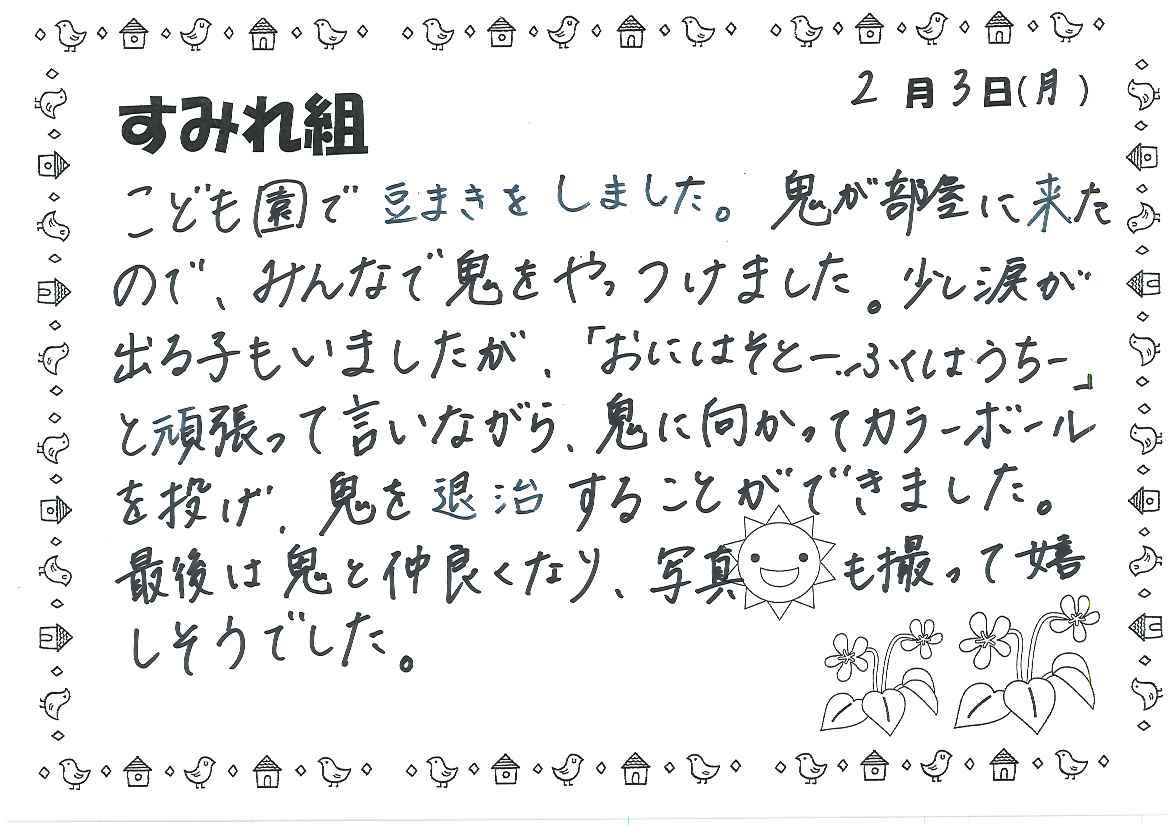 2月3日(月)
すみれ組
こども園で豆まきをしました。鬼が部屋に来た
ので、みんなで鬼をやっつけました。少し涙が
出る子もいましたが、「おにはそとー、ふくはうちー」
と頑張って言いながら、鬼に向かってカラーボール
を投げ、鬼を退治することができました。
最後は鬼と仲良くなり、写真も撮って嬉
しそうでした。